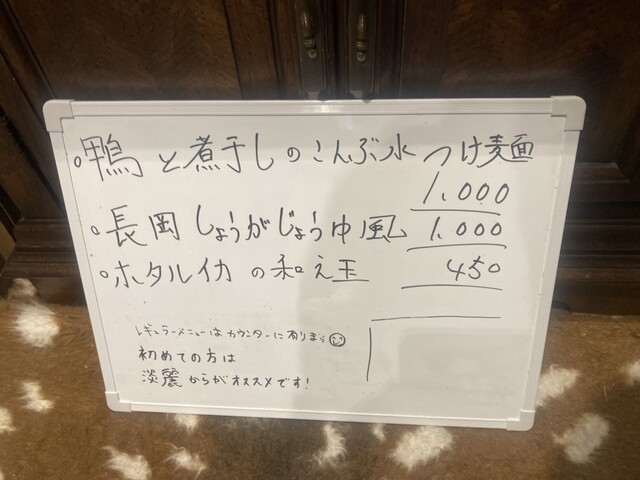 。鴨と煮干しのこんぶ水つけ麺
1.000
。長岡しょうがじょうゆ風 1.000
。ホタルイカの和え玉 450
レギュラーメニューはカウンターに有ります
初めての方は
淡麗からがオススメです!